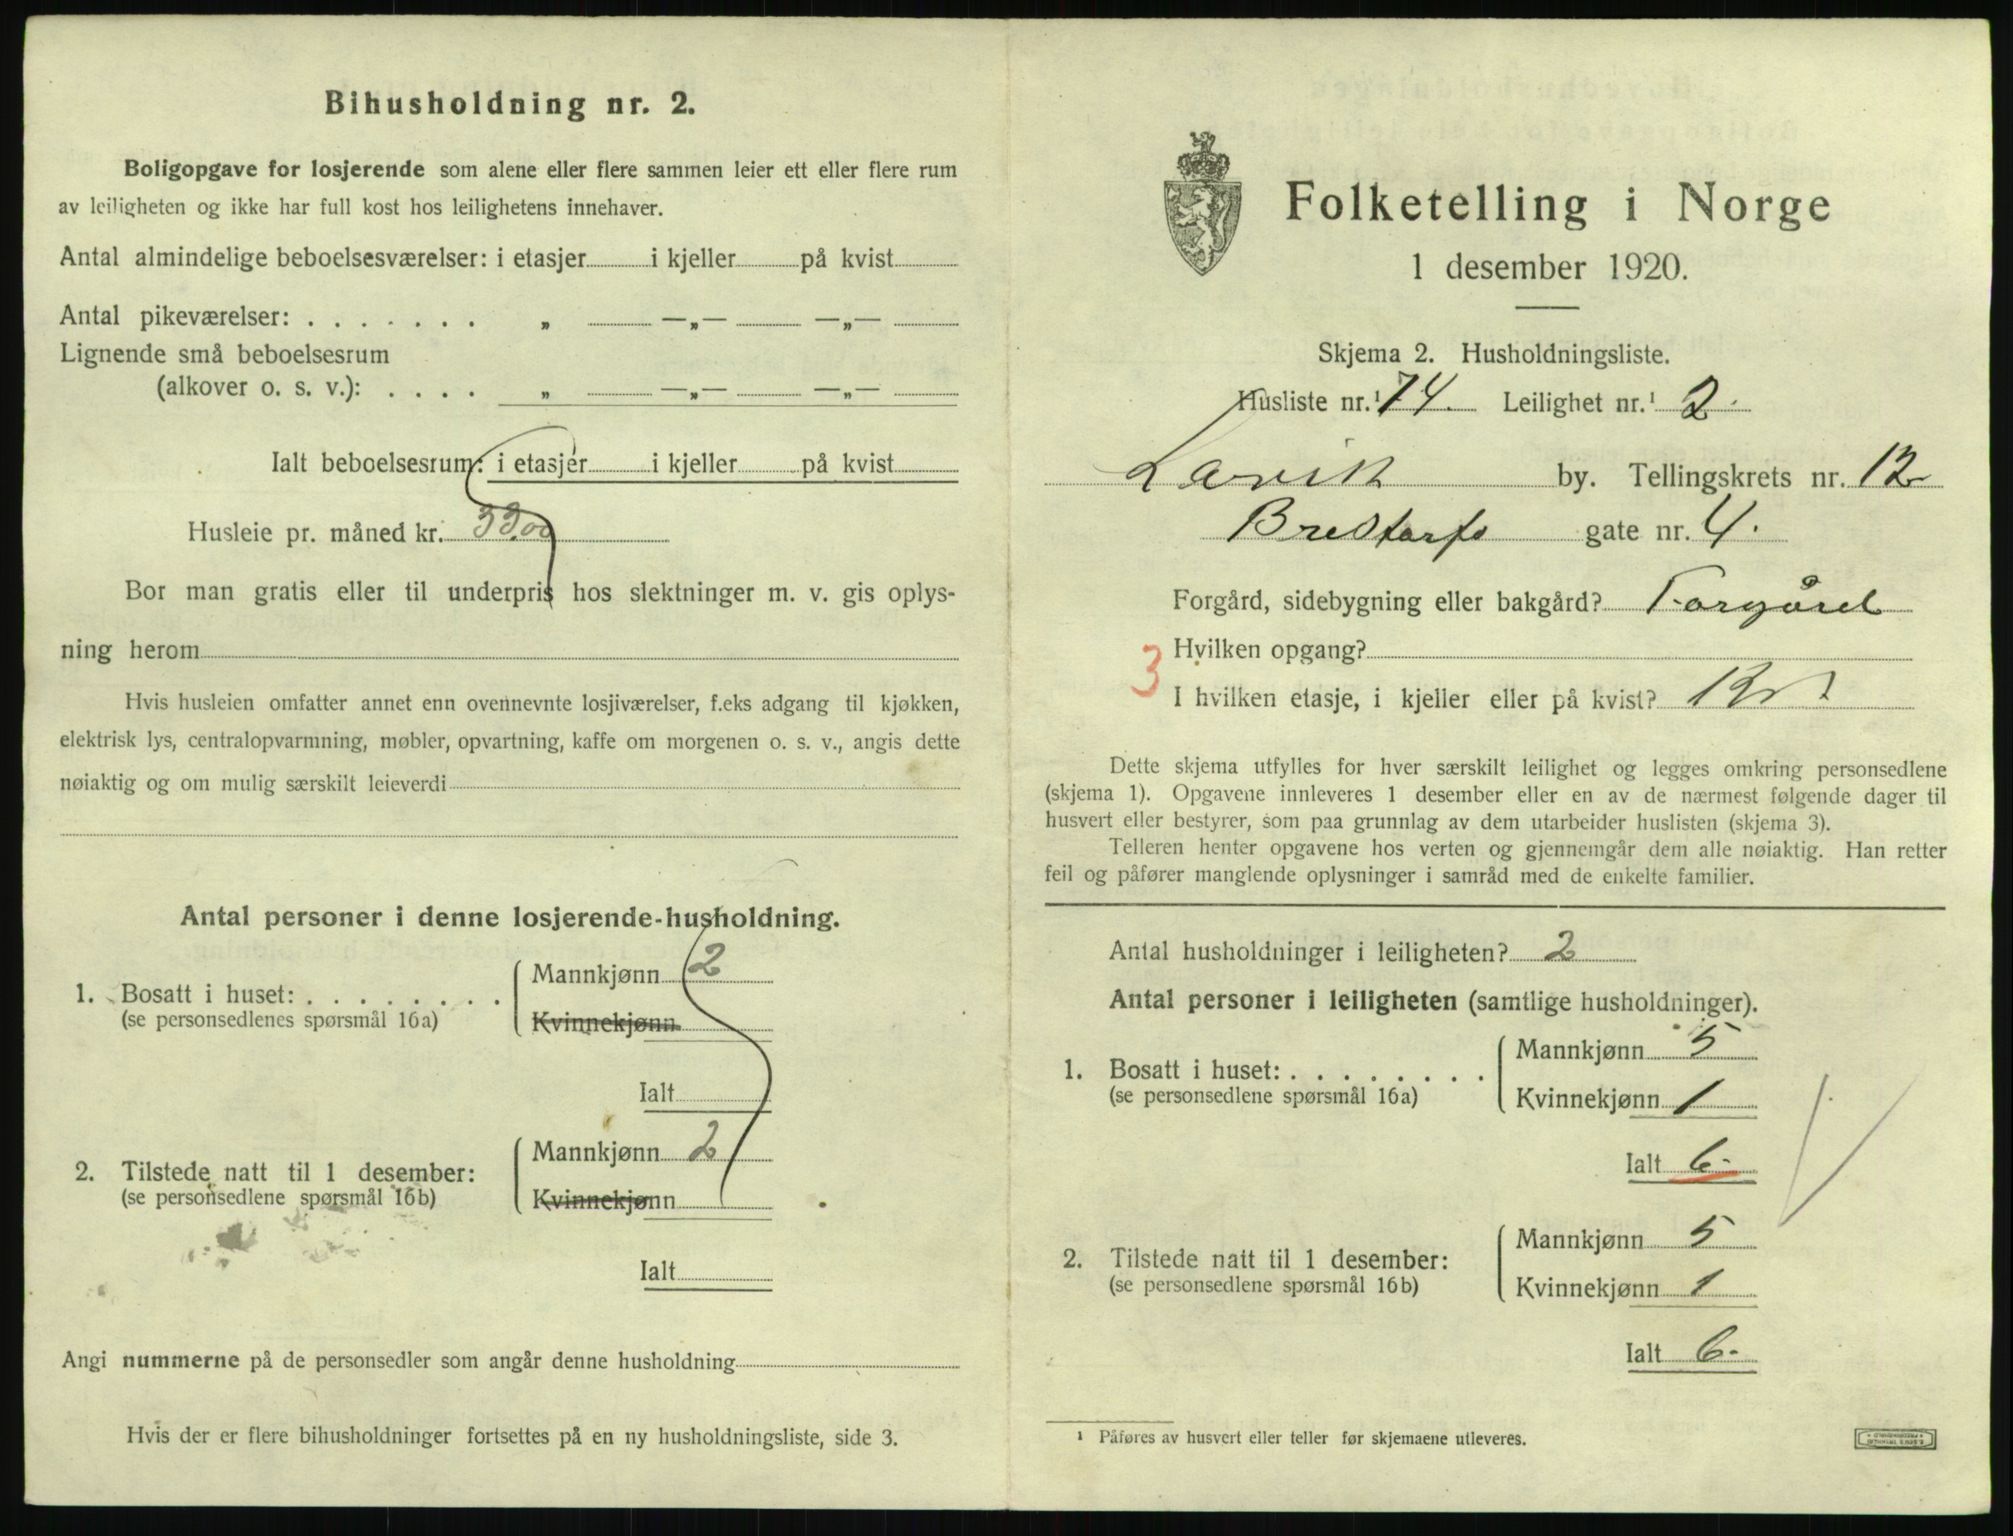 Bihusholdning nr. 2.
Boligopgave for losjerende som alene eller flere sammen leier ett eller flere rum
av leiligheten og ikke har full kost hos leilighetens innehaver.
Antal almindelige beboelsesværelser: i etasjer i kjeller på kvist
Antal pikeværelser: . . . . . . . „ —„— —„—
Lignende små beboelsesrum
(alkover o. s. v.): . . . . „ —„— —„—
Ialt beboelsesrum: i etasjer i kjeller på kvist
Husleie pr. måned kr. 33.00
Bor man gratis eller til underpris hos slektninger m. v. gis oplys-
ning herom
Hvis husleien omfatter annet enn ovennevnte losjiværelser, f.eks adgang til kjøkken,
elektrisk lys, centralopvarmning, møbler, opvartning, kaffe om morgenen o. s. v., angis dette
nøiaktig og om mulig særskilt leieverdi
Antal personer i denne losjerende-husholdning.
1. Bosatt i huset: . . . . . . . . Mannkjønn 2
(se personsedlenes spørsmål 16a) Kvinnekjønn
Ialt
2. Tilstede natt til 1 desember: Mannkjønn 2
(se personsedlene spørsmål 16b) Kvinnekjønn
Ialt
Angi nummerne på de personsedler som angår denne husholdning
Hvis der er flere bihusholdninger fortsettes på en ny husholdningsliste, side 3.
Folketelling i Norge
1 desember 1920.
Skjema 2. Husholdningsliste.
Husliste nr.¹ 74. Leilighet nr.¹ 2.
Larvik by. Tellingskrets nr. 12
gate nr. 4.
Forgård, sidebygning eller bakgård? Forgård
Hvilken opgang?
3
I hvilken etasje, i kjeller eller på kvist?
Dette skjema utfylles for hver særskilt leilighet og legges omkring personsedlene
(skjema 1). Opgavene innleveres 1 desember eller en av de nærmest følgende dager til
husvert eller bestyrer, som paa grunnlag av dem utarbeider huslisten (skjema 3).
Telleren henter opgavene hos verten og gjennemgår dem alle nøiaktig. Han retter
feil og påfører manglende oplysninger i samråd med de enkelte familier.
Antal husholdninger i leiligheten? 2
Antal personer i leiligheten (samtlige husholdninger).
1. Bosatt i huset: . . . . . . . . Mannkjønn 5
(se personsedlene spørsmål 16a) Kvinnekjønn 1
Ialt 6.
2. Tilstede natt til 1 desember: Mannkjønn 5
(se personsedlene spørsmål 16b) Kvinnekjønn 1
Ialt 6.
¹ Påføres av husvert eller teller før skjemaene utleveres.